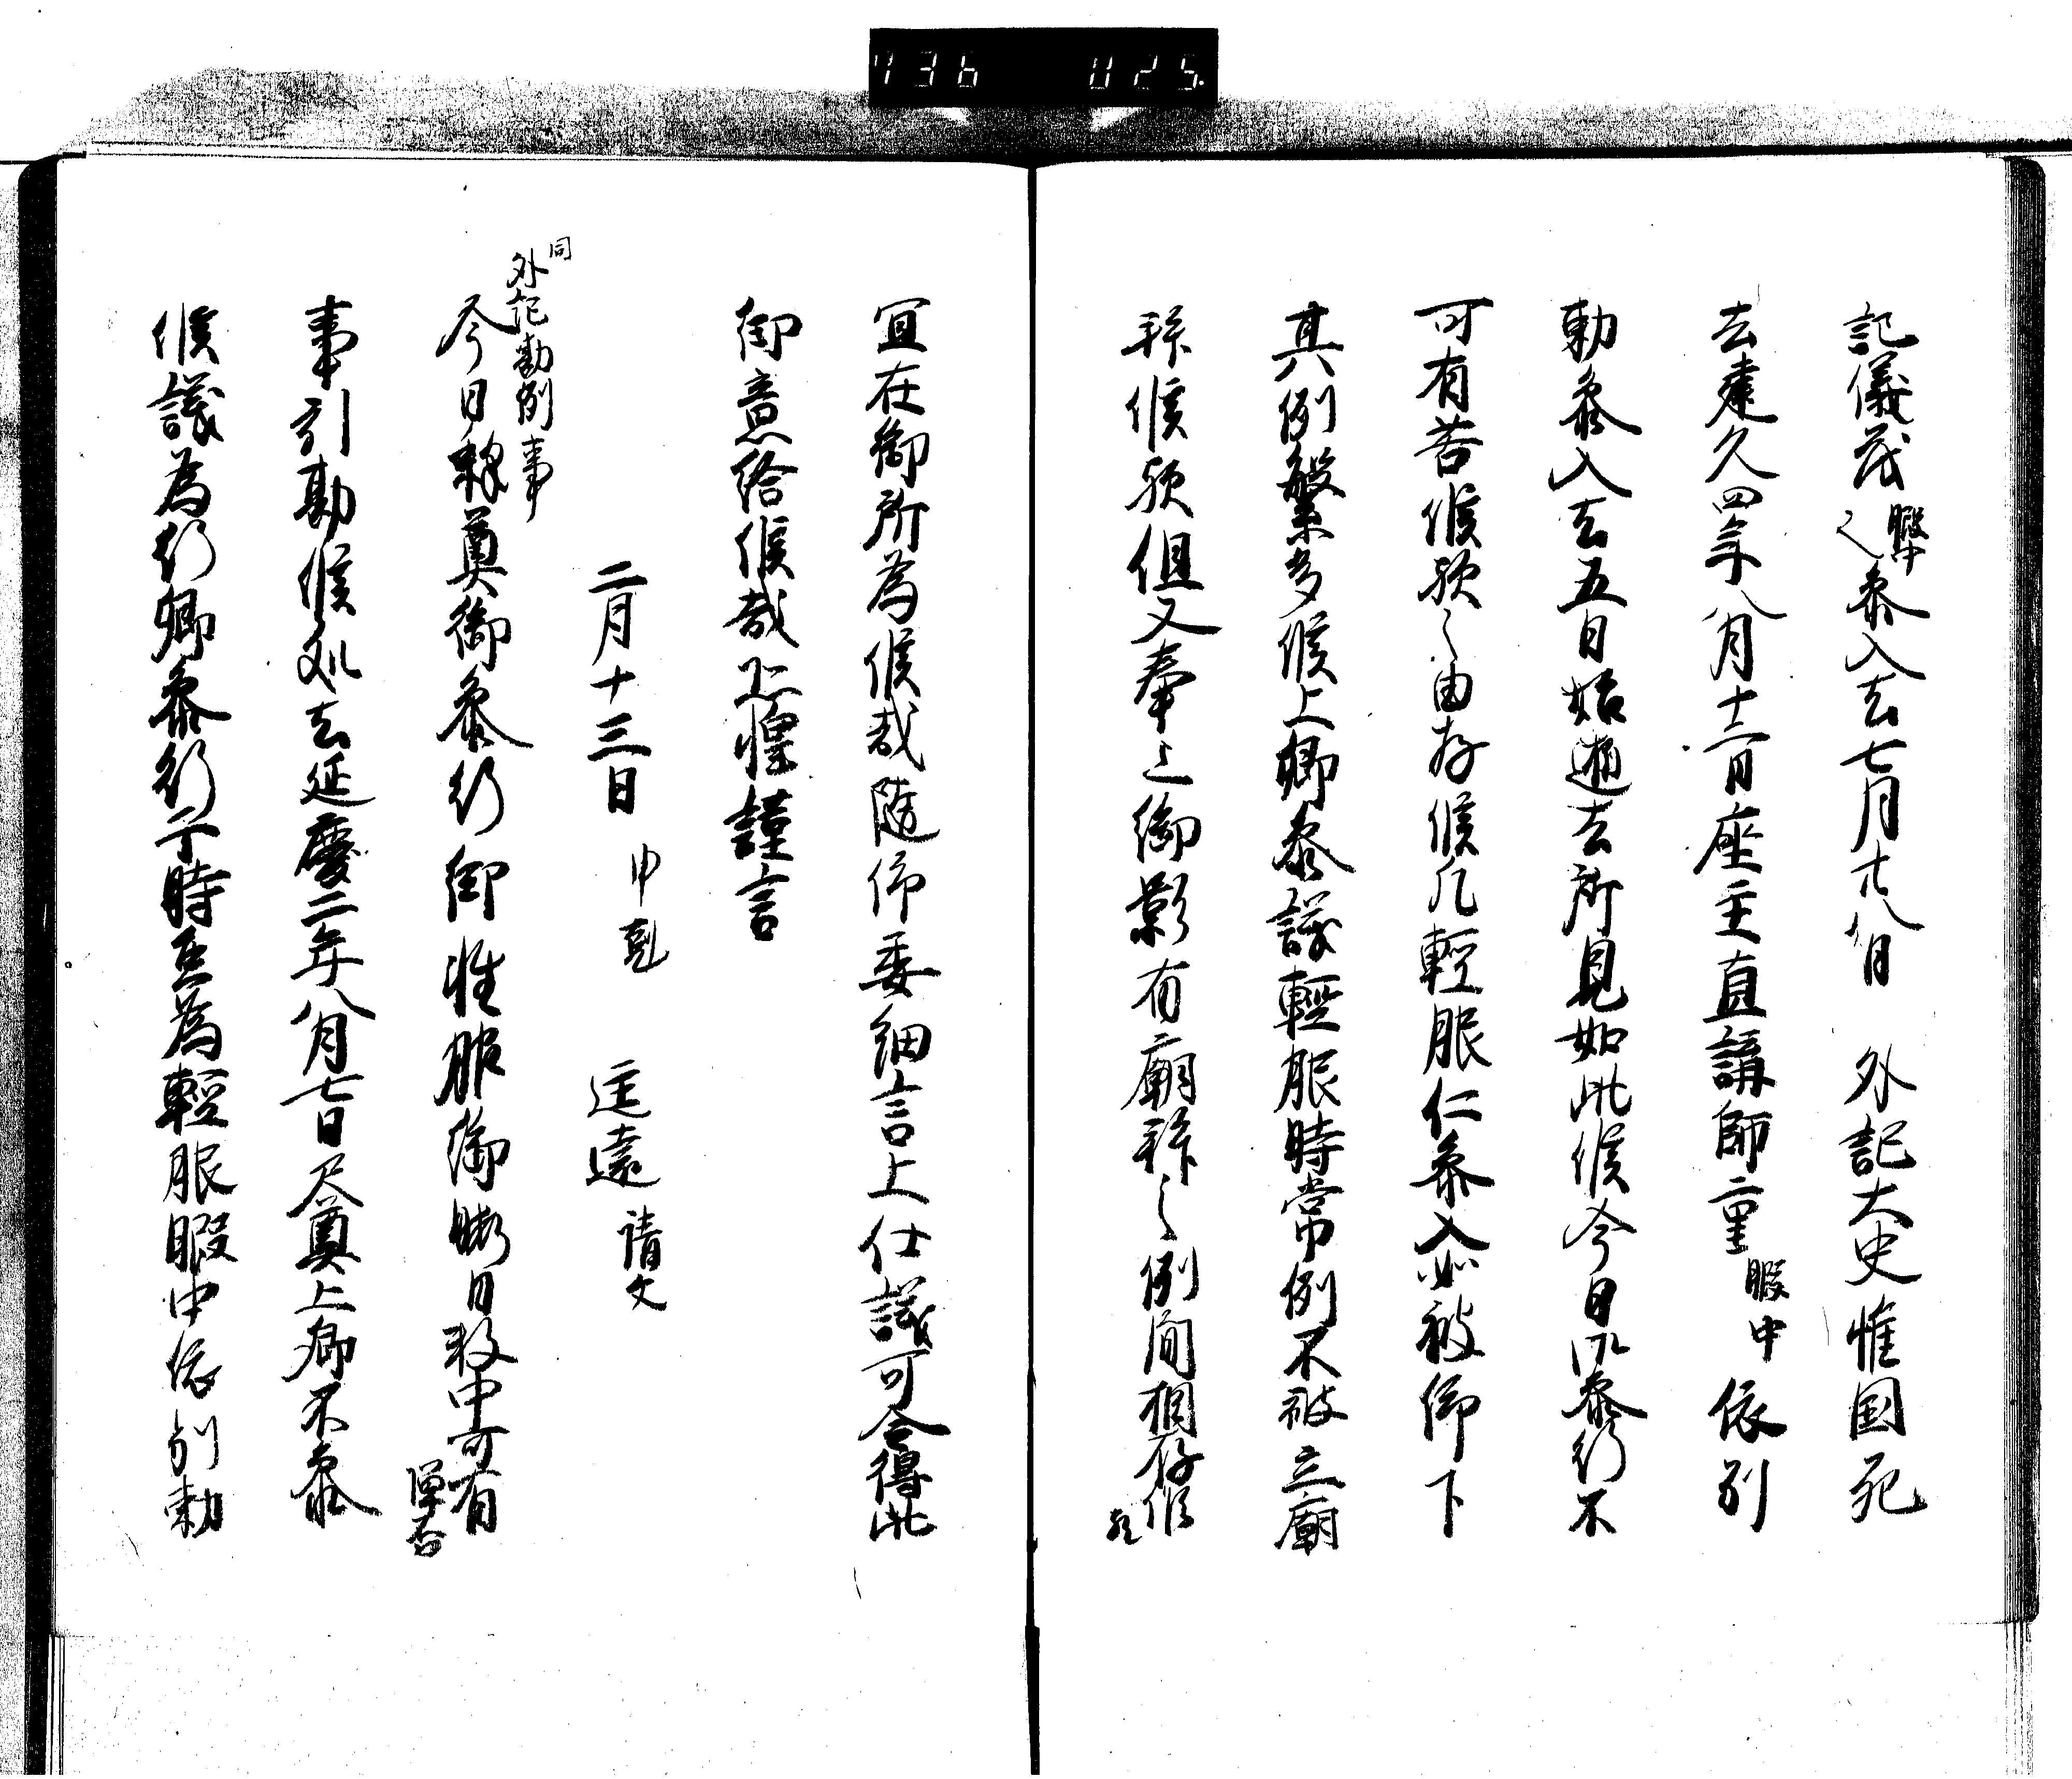 記儀茂暇中参入去七月廿八日 外記大史惟国死
去建久四年八月十一日座主直講師重暇中依別
勅参入去五日姑逝去所見如此候今日御参行不
可有苦候歟之由存候凡軽服仁参入必被仰下
其例繁多候上卿参議軽服時常例不被立廟
拝候歟但又奉上御影有廟拝之例間相存候
宜在御所為候哉随仰委細言上仕議可令得此
御意給候哉恐惶謹言
二月十三日 申剋 匡遠請文
同
外記勘例事
今日釈奠御参行御雑服御暇日数中可有
憚否
事引勘候処去延慶二年八月七日尺奠上卿不参
候議為行卿参行于時臣為軽服暇中依別勅